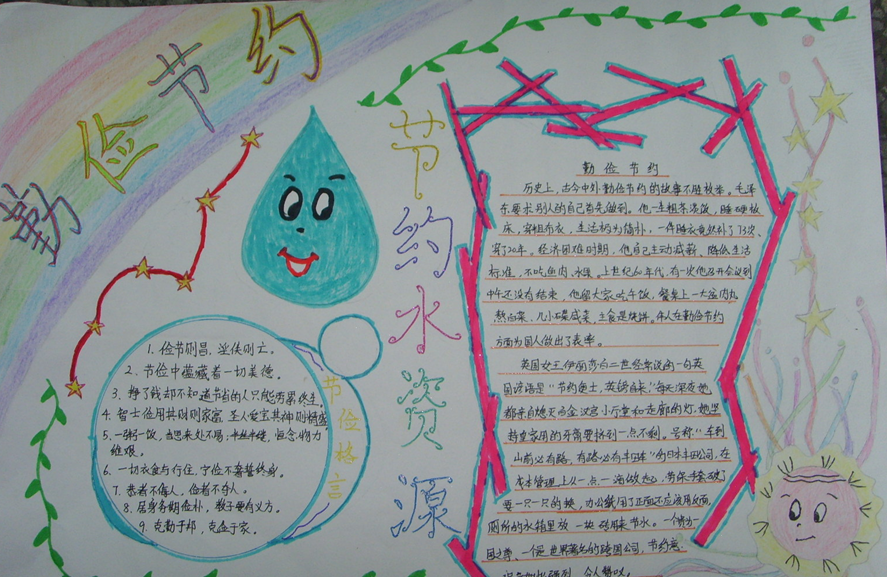 勤俭节约
节约水资源
节俭格言
1. 俭节则昌，淫佚则亡。
2. 节俭中蕴藏着一切美德。
3. 挣了钱却不知道节省的人只能劳累终生
4. 智士俭用其财则家富 圣人爱宝其神则精盛
5. 一粥一饭，当思来处不易；半丝半缕，恒念物力
维艰。
6. 一切衣食与行住，宁俭不奢誓终身。
7. 恭者不侮人，俭者不夺人。
8. 居身务期俭朴，教子要有义方。
9. 克勤于邦，克俭于家。
勤 俭 节 约
历史上，古今中外勤俭节约的故事不胜枚举。毛泽
东要求别人的自己首先做到。他一生粗茶淡饭，睡硬板
床，穿粗布衣，生活极为简朴，一件睡衣竟然补了73次、
穿了20年。经济困难时期，他自己主动减薪、降低生活
标准，不吃鱼肉、水果。上世纪60年代，有一次他召开会议到
中午还没有结束，他留大家吃午饭，餐桌上一大盆肉丸
熬白菜，几小碟咸菜，主食是烧饼。伟人在勤俭节约
方面为国人做出了表率。
英国女王伊丽莎白二世经常说的一句英
国谚语是“节约便士，英镑自来”每天深夜她
都亲自熄灭白金汉宫小厅堂和走廊的灯，她坚
持皇家用的牙膏要挤到一点不剩。号称“车到
山前必有路，有路必有丰田车”的日本丰田公司，在
成本管理上从一点一滴做起，劳保手套破了
要一只一只的换，办公纸用了正面还应该用反面，
厕所的水箱里放一块砖用来节水。一个贵为一
国之尊、一个是世界著名的跨国公司，节约意
令人赞叹。